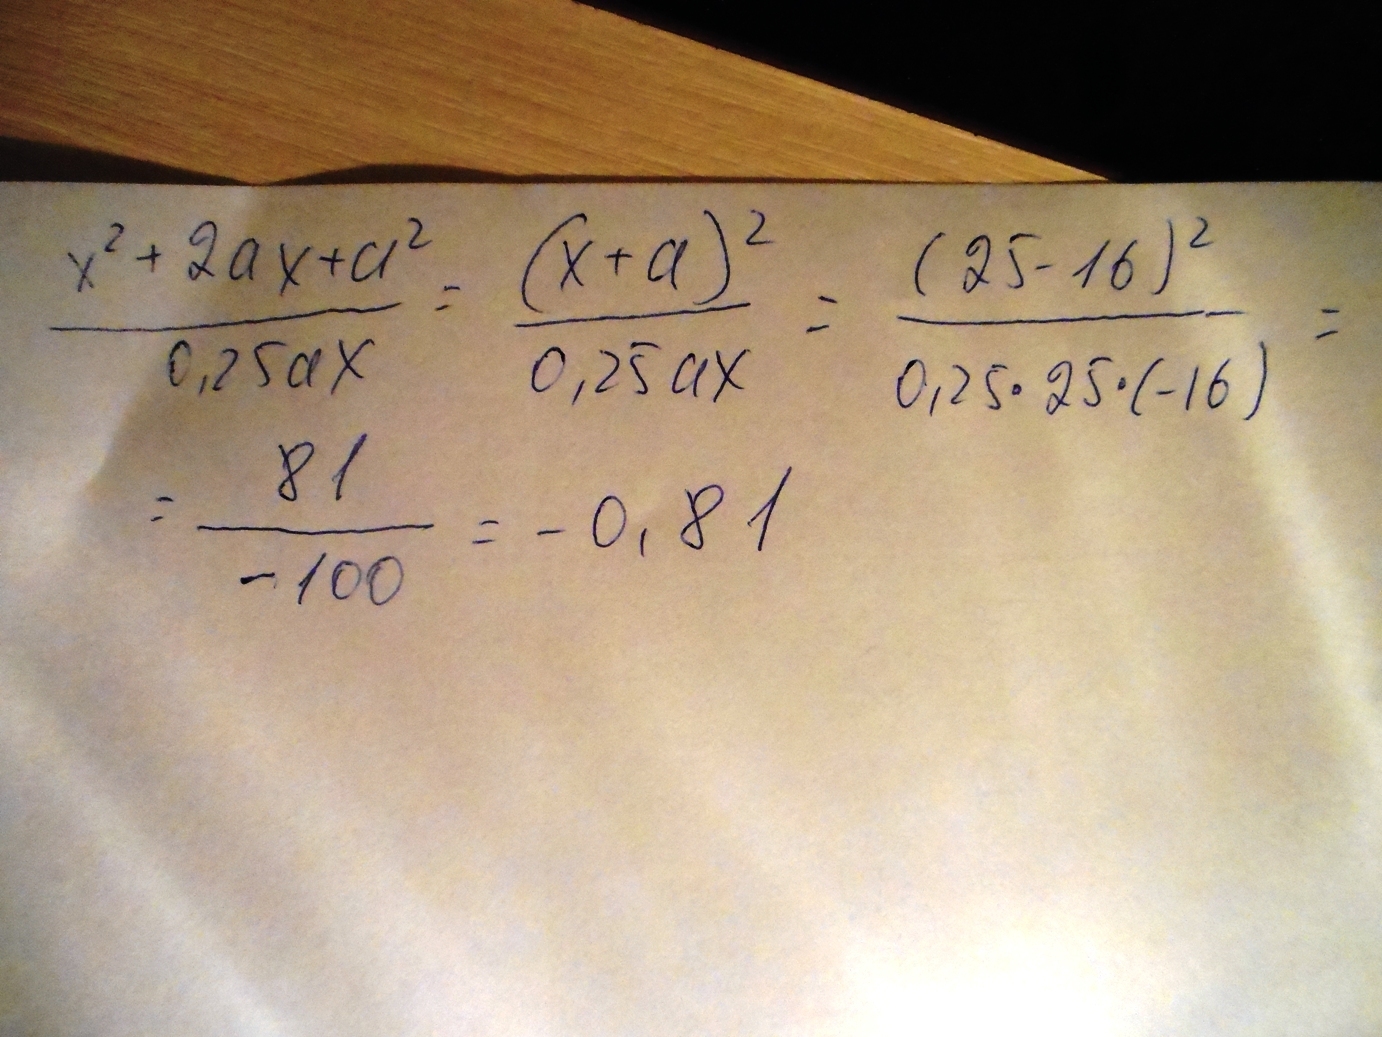 x² + 2ax + a² / 0,25ax = (x + a)² / 0,25ax = (25 - 16)² / 0,25 · 25 · (-16) =
= 81 / -100 = -0,81